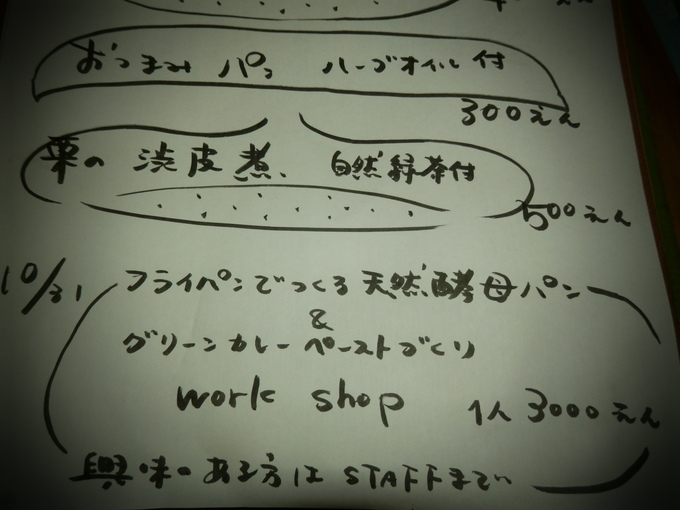 おつまみ パン ハーブオイル付
300えん
栗の 渋皮煮、 自然緑茶付
500えん
10/31
フライパンでつくる 天然酵母パン
&
グリーンカレーペーストづくり
work shop 1人 3000えん
興味のある方は STAFFまで